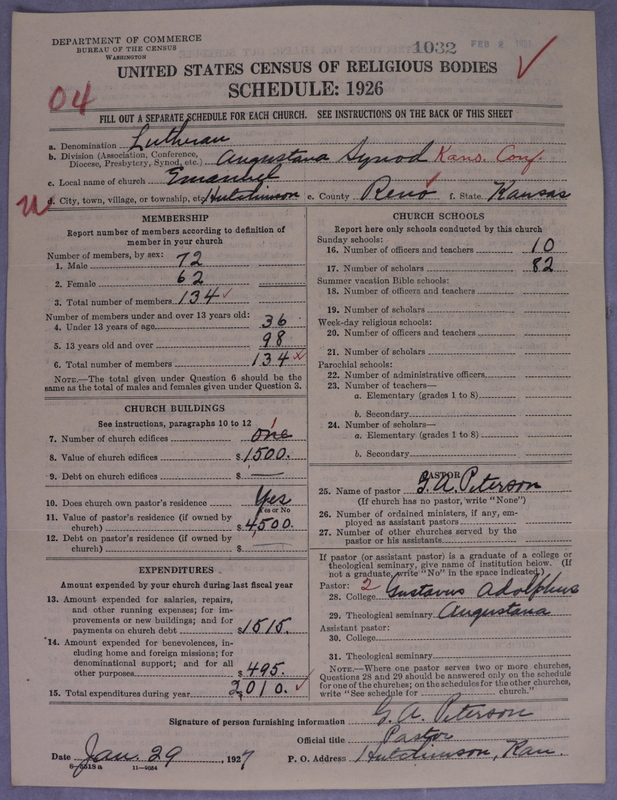 DEPARTMENT OF COMMERCE
BUREAU OF THE CENSUS
WASHINGTON
1032 FEB 2 1927
UNITED STATES CENSUS OF RELIGIOUS BODIES
SCHEDULE: 1926
04
FILL OUT A SEPARATE SCHEDULE FOR EACH CHURCH. SEE INSTRUCTIONS ON THE BACK OF THIS SHEET
a. Denomination Lutheran
b. Division (Association, Conference, Diocese, Presbytery, Synod, etc.) Augustana Synod Kans. Conf.
c. Local name of church Emanuel
d. City, town, village, or township, etc. Hutchinson e. County Reno f. State Kansas
MEMBERSHIP
Report number of members according to definition of
member in your church
Number of members, by sex:
1. Male 72
2. Female 62
3. Total number of members 134
Number of members under and over 13 years old:
4. Under 13 years of age 36
5. 13 years old and over 98
6. Total number of members 134
NOTE.—The total given under Question 6 should be
same as the total of males and females given under Question 3.
CHURCH BUILDINGS
See instructions, paragraphs 10 to 12
7. Number of church edifices one 1
8. Value of church edifices $1500.
9. Debt on church edifices $ —
10. Does church own pastor's residence Yes
Yes or No
11. Value of pastor's residence (if owned by
church) $4,500.
12. Debt on pastor's residence (if owned by
church) $ —
EXPENDITURES
Amount expended by your church during last fiscal year
13. Amount expended for salaries, repairs,
and other running expenses; for im-
provements or new buildings; and for
payments on church debt $1515.
14. Amount expended for benevolences, in-
cluding home and foreign missions; for
denominational support; and for all
other purposes $495.
15. Total expenditures during year $2010.
CHURCH SCHOOLS
Report here only schools conducted by this church
Sunday schools:
16. Number of officers and teachers 10
17. Number of scholars 82
Summer vacation Bible schools:
18. Number of officers and teachers
19. Number of scholars
Week-day religious schools:
20. Number of officers and teachers
21. Number of scholars
Parochial schools:
22. Number of administrative officers
23. Number of teachers—
a. Elementary (grades 1 to 8)
b. Secondary
24. Number of scholars—
a. Elementary (grades 1 to 8)
b. Secondary
PASTOR
25. Name of pastor G. A. Peterson
(If church has no pastor, write "None")
26. Number of ordained ministers, if any, em-
ployed as assistant pastors
27. Number of other churches served by the
pastor or his assistants
If pastor (or assistant pastor) is a graduate of a college or
theological seminary, give name of institution below. (If
not a graduate, write "No" in the space indicated.)
Pastor: 2
28. College Gustavus Adolphus
29. Theological seminary Augustana
Assistant pastor:
30. College
31. Theological seminary
NOTE.—Where one pastor serves two or more churches,
Questions 28 and 29 should be answered only on the schedule
for one of the churches; on the schedules for the other churches,
write "See schedule for church."
Signature of person furnishing information G. A. Peterson
Official title Pastor
Date Jan. 29, 1927 P. O. Address Hutchinson, Kan.
8-5518 a 11-9054